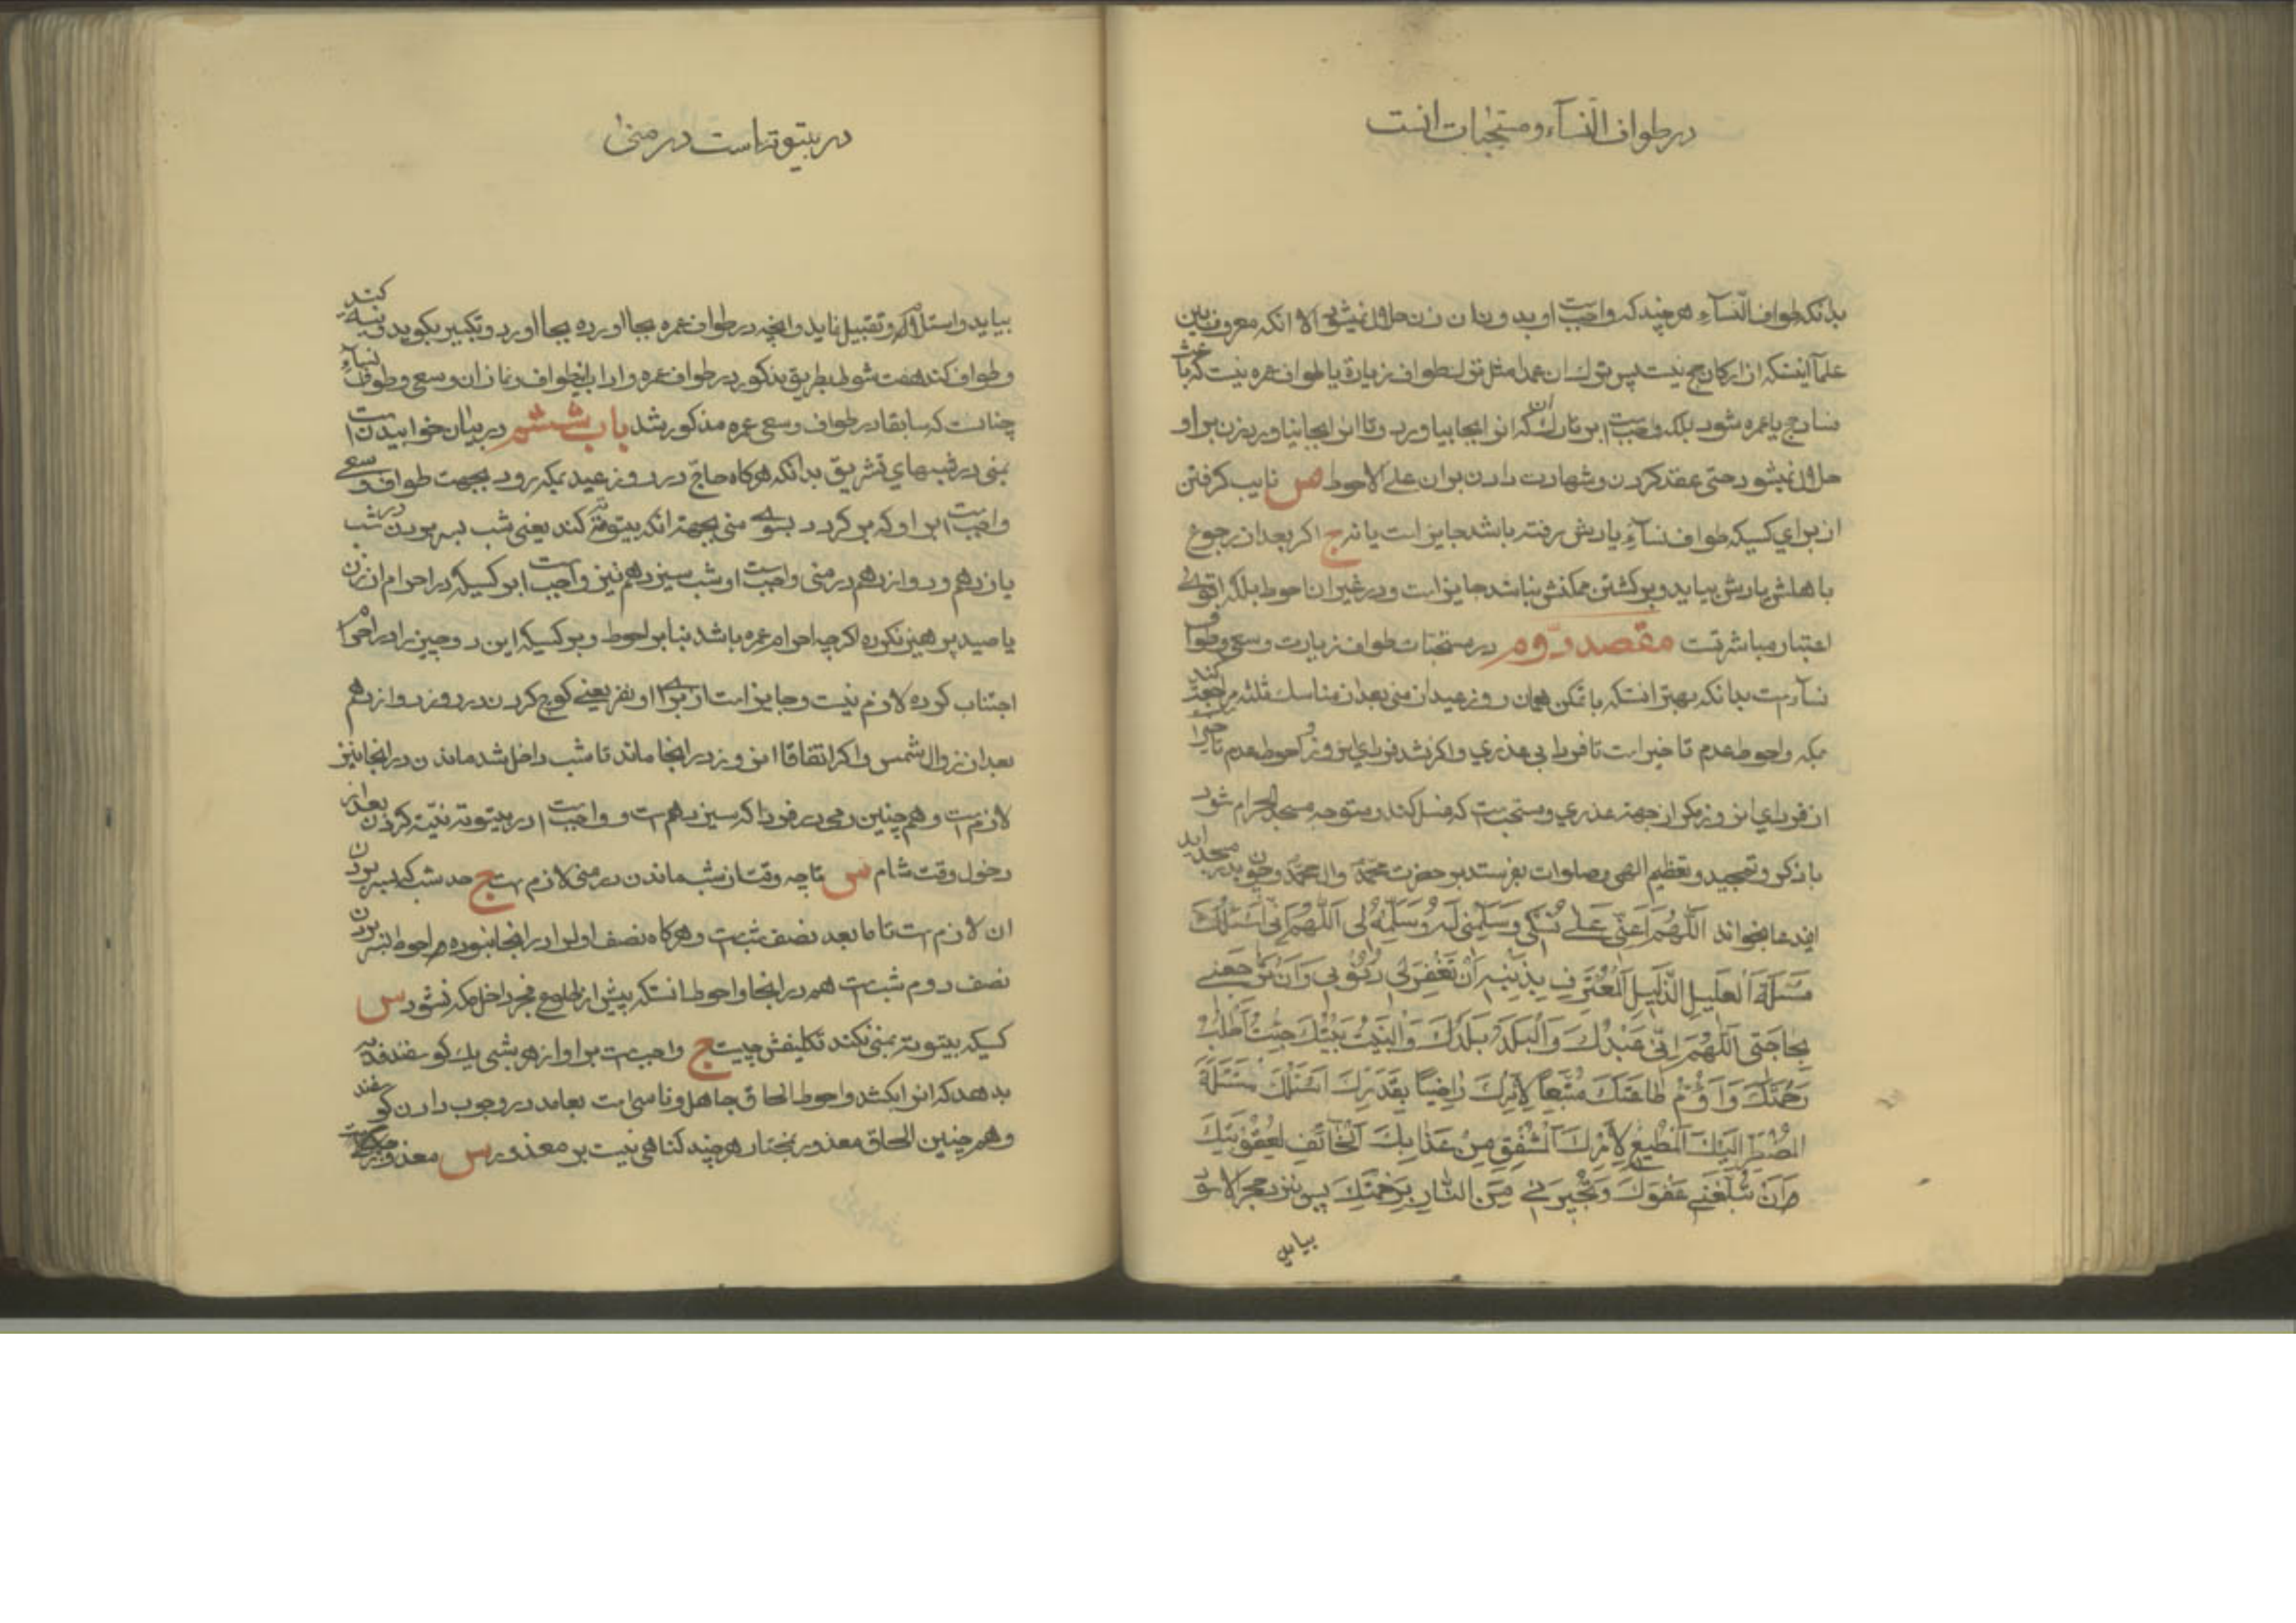 در طواف النسآء و مستحبات انست
بدانکه طواف النّسآء هر چند که واجبست او بدون ان زن حلال نمیشود الا انکه معروف بین
علمآ اینستکه از ارکان حج نیست پس ترک ان عمدا مثل ترک طواف زیارة یا طواف عمره نیست که باعث
فساد حج یا عمره شود بلکه واجبست بر تارک ان که انرا بجا بیاورد و تا انرا بجا نیاورد زن بر او
حلال نمیشود حتی عقد کردن و شهادت دادن بران علی الاحوط ص نایب کرفتن
از برای کسیکه طواف نسآء یادش رفته باشد جایز است یا نه ج اکر بعد از رجوع
باهلش یادش بیاید و برکشتن ممکنش نباشد جایز است و در غیر ان احوط بلکه اقوی
اعتبار مباشرتست مقصد دوم در مستحبات طواف زیارت و سعی و طواف
نسآءست بدانکه بهتر انستکه با تمکن همان روز عید از منی بعد از مناسک ثلثه مراجعت کند
بمکه و احوط عدم تاخیر است تا فردا بی عذری و اکر نشد فردای انروز و احوط عدم تاخیر
از فردای انروز مکر از جهة عذری و مستحبست که غسل کند و متوجه مسجد الحرام شود
با ذکر و تمجید و تعظیم الهی و صلوات بفرستد بر حضرت محمّد و ال محمّد و چون بدر مسجد اید
ایندعا بخواند اَللّهُمَّ اَعِنّی عَلی نُسُکی وَ سَلِّمْنی لَهُ وَ سَلِّمْهُ لی اَللّهُمَّ اِنّی اَسْئَلُکَ
مَسْئَلَةَ العَلیلِ الذَّلیلِ الْمُعْتَرِفِ بِذَنْبِهِ اَنْ تَغْفِرَ لی ذُنُوبی وَ اَنْ تَرْجِعَنی
بِحاجَتی اَللّهُمَّ اِنّی عَبْدُکَ وَ الْبَلَدُ بَلَدُکَ وَ الْبَیْتُ بَیْتُکَ جِئْتُ اَطْلُبُ
رَحْمَتَکَ وَ اَؤُمُّ طاعَتَکَ مُتَّبِعاً لِاَمْرِکَ راضِیاً بِقَدَرِکَ اَسْئَلُکَ مَسْئَلَةَ
المُضْطَرِّ اِلَیْکَ المُطیعِ لِاَمْرِکَ المُشْفِقِ مِنْ عَذابِکَ الْخائِفِ لِعُقُوبَتِکَ
اَنْ تُبَلِّغَنی عَفْوَکَ وَ تُجیرَنی مِنَ النّارِ بِرَحْمَتِکَ پس نزد حجر الاسود
بیاید
در بیتوته است در منی
بیاید و استلام و تقبیل نماید و انچه در طواف عمره بجا اورده بجا اورد و تکبیر بکوید و نیة کند
و طواف کند هفت شوط بطریق مذکور در طواف عمره و اداب انطواف و نماز ان و سعی و طواف نسآء
چنانست که سابقا در طواف و سعی عمره مذکور شد باب ششم در بیان خوابیدنست
بمنی در شبهای تشریق بدانکه هرکاه حاجّ در روز عید بمکه رود بجهت طواف و سعی
واجبست بر او که بر کردد بسوی منی بجهة انکه بیتوته کند یعنی شب بسر بودن در شب
یازدهم و دوازدهم در منی واجبست و شب سیزدهم نیز واجبست بر کسیکه در احرام از زن
یا صید پرهیز نکرده اکرچه احرام عمره باشد بنابر احوط و بر کسیکه این دو چیز را در احرام
اجتناب کرده لازم نیست و جایز است از برای او نفر یعنی کوچ کردن در روز دوازدهم
بعد از زوال شمس و اکر اتفاقا انروز در انجا ماند تا شب داخل شد ماندن در انجا نیز
لازمست و هم چنین رمی در فردا که سیزدهمست و واجبست در بیتوته نیّة کردن بعد از
دخول وقت شام س تا چه وقت از شب ماندن در منی لازمست ج حد شب که بسر بودن
ان لازمست تا ما بعد نصف شبست و هرکاه نصف اول را در انجا نبوده احوط بسر بودن
نصف دوم شبست هم در انجا و احوط انستکه پیش از طلوع فجر داخل مکه نشود س
کسیکه بیتوته بمنی نکند تکلیفش چیست ج واجبست بر او از هر شبی یک کوسفند فدیه
بدهد که انرا بکشد و احوط الحاق جاهل و ناسی است بعامد در وجوب دادن کوسفند
و هم چنین الحاق معذور بمختار هر چند کناهی نیست بر معذور س معذور